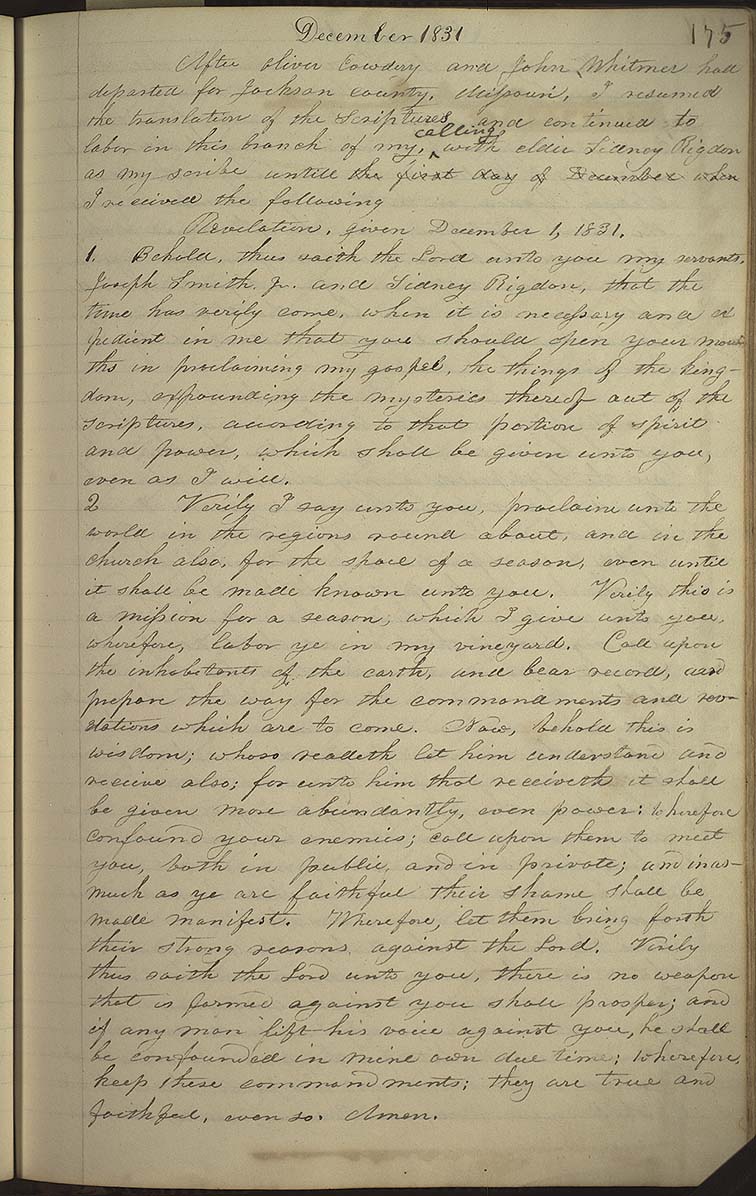 December 1831
175
After Oliver Cowdery and John Whitmer had
departed for Jackson county, Missouri, I resumed
the translation of the Scriptures, and continued to
labor in this branch of my ^calling with elder Sidney Rigdon
as my scribe untill the first day of December when
I received the following
Revelation, given December 1, 1831.
1. Behold, thus saith the Lord unto you my servants,
Joseph Smith Jr. and Sidney Rigdon, that the
time has verily come, when it is necessary and ex
pedient in me that you should open your mou
ths in proclaiming my gospel, he things of the king-
dom, expounding the mysteries thereof out of the
scriptures, according to that portion of spirit
and power, which shall be given unto you,
even as I will.
2 Verily I say unto you, proclaim unto the
world in the regions round about, and in the
church also, for the space of a season, even until
it shall be made known unto you. Verily this is
a mission for a season; which I give unto you,
wherefore, labor ye in my vineyard. Call upon
the inhabitants of the earth, and bear record, and
prepare the way for the commandments and rev-
elations which are to come. Now, behold this is
wisdom; whoso readeth let him understand and
receive also; for unto him that receiveth it shall
be given more abundantly, even power: wherefore
confound your enemies; call upon them to meet
you, both in public, and in private; and inas-
much as ye are faithful their shame shall be
made manifest. Wherefore, let them bring forth
their strong reasons against the Lord. Verily
thus saith the Lord unto you, there is no weapon
that is formed against you shall prosper; and
if any man lift his voice against you, he shall
be confounded in mine own due time; wherefore,
keep these commandments; they are true and
faithful, even so. Amen.